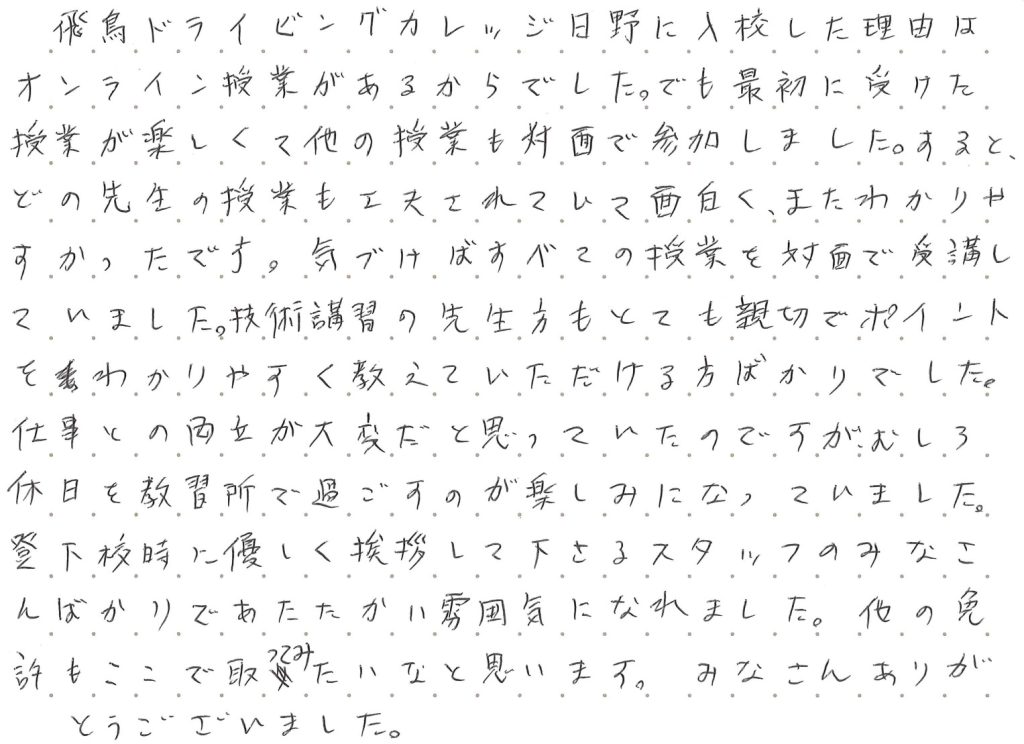 飛鳥ドライビングカレッジ日野に入校した理由は
オンライン授業があるからでした。でも最初に受けた
授業が楽しくて他の授業も対面で参加しました。すると、
どの先生の授業も工夫されていて面白く、またわかりや
すかったです。気づけばすべての授業を対面で受講し
ていました。技術講習の先生方もとても親切でポイント
をわかりやすく教えていただける方ばかりでした。
仕事との両立が大変だと思っていたのですが、むしろ
休日を教習所で過ごすのが楽しみになっていました。
登下校時に優しく挨拶して下さるスタッフのみなさ
んばかりであたたかい雰囲気になれました。他の免
許もここで取ってみたいなと思います。みなさんありが
とうございました。